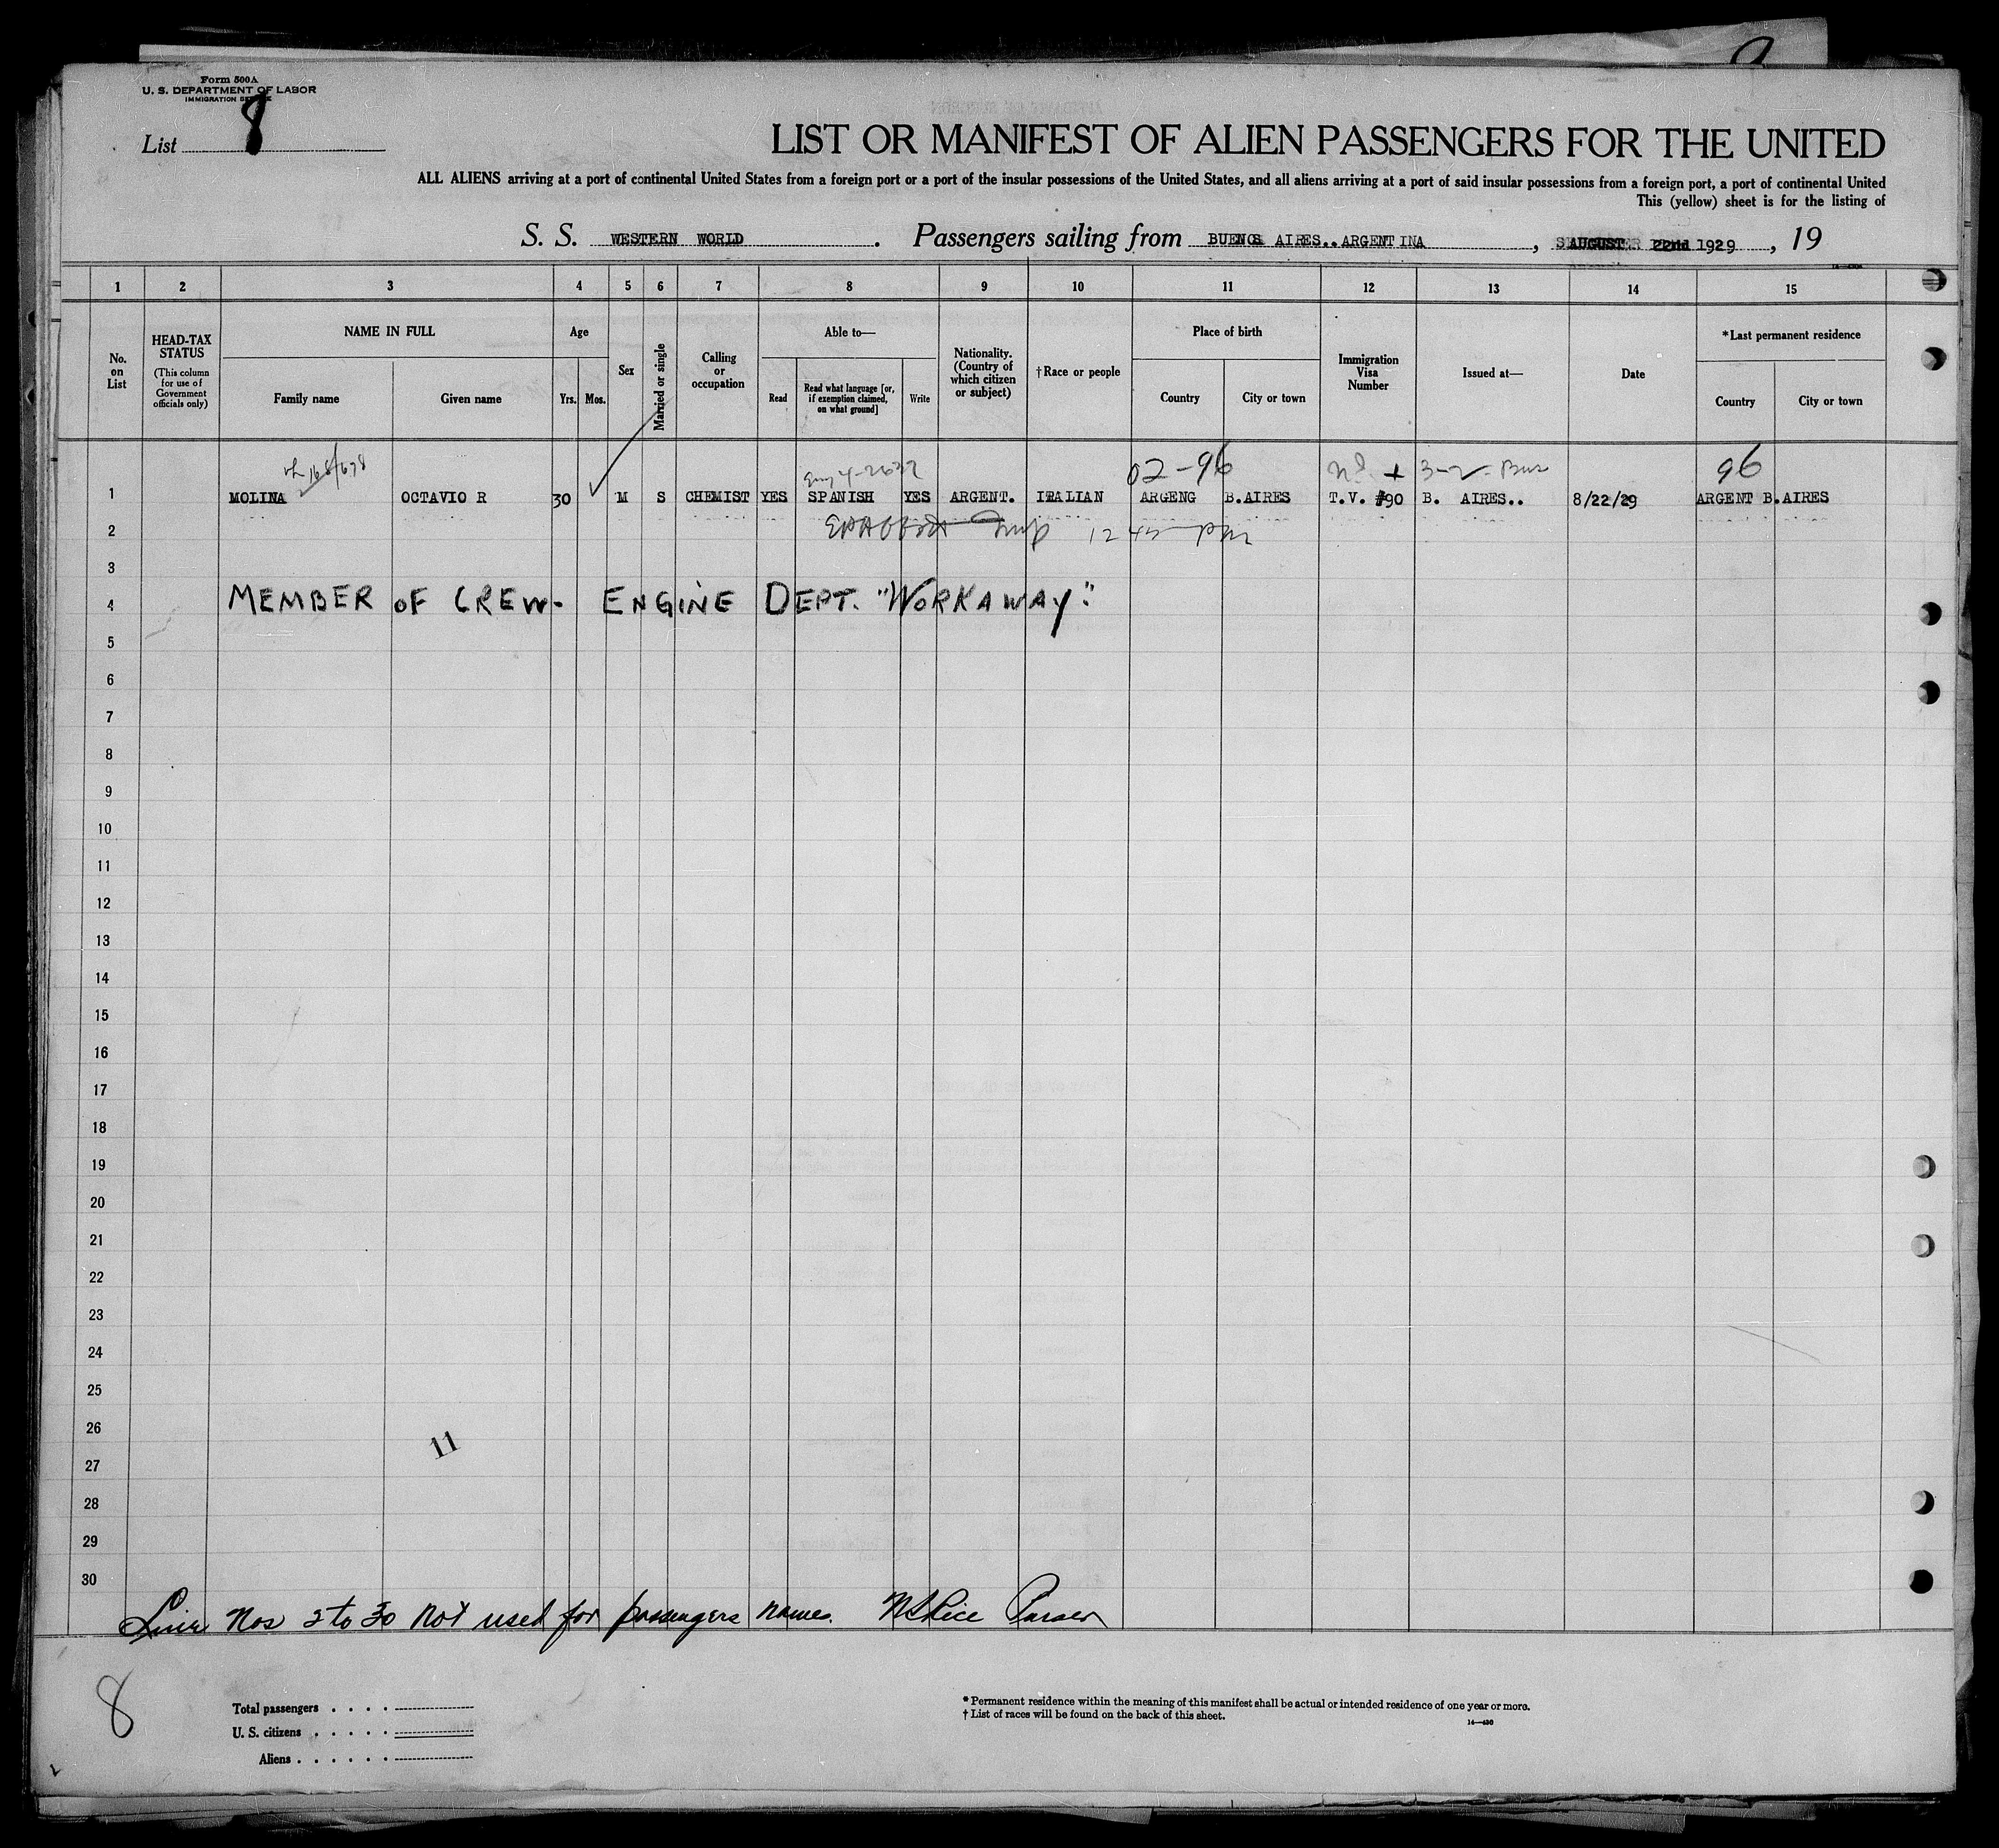 Form 500A
U. S. DEPARTMENT OF LABOR
IMMIGRATION SERVICE
List 8
LIST OR MANIFEST OF ALIEN PASSENGERS FOR THE UNITED
ALL ALIENS arriving at a port of continental United States from a foreign port or a port of the insular possessions of the United States, and all aliens arriving at a port of said insular possessions from a foreign port, a port of continental United
This (yellow) sheet is for the listing of
S. S. WESTERN WORLD . Passengers sailing from BUENOS AIRES..ARGENTINA , AUGUST 22nd 1929 , 19
1 2 3 4 5 6 7 8 9 10 11 12 13 14 15
No. on List
HEAD-TAX STATUS (This column for use of Government officials only)
NAME IN FULL
Family name Given name
Age
Yrs. Mos.
Sex
Married or single
Calling or occupation
Able to—
Read
Read what language [or, if exemption claimed, on what ground]
Write
Nationality. (Country of which citizen or subject)
†Race or people
Place of birth
Country City or town
Immigration Visa Number
Issued at—
Date
*Last permanent residence
Country City or town
02-96 96
1 MOLINA OCTAVIO R 30 M S CHEMIST YES SPANISH YES ARGENT. ITALIAN ARGENG B.AIRES T.V. #90 B. AIRES.. 8/22/29 ARGENT B.AIRES
2
3
4 MEMBER OF CREW- ENGINE DEPT. "WORKAWAY."
5
6
7
8
9
10
11
12
13
14
15
16
17
18
19
20
21
22
23
24
25
26
11
27
28
29
30
Nos 2 to 30 not used for passengers names. Purser
8
Total passengers
U. S. citizens
Aliens
* Permanent residence within the meaning of this manifest shall be actual or intended residence of one year or more.
† List of races will be found on the back of this sheet.